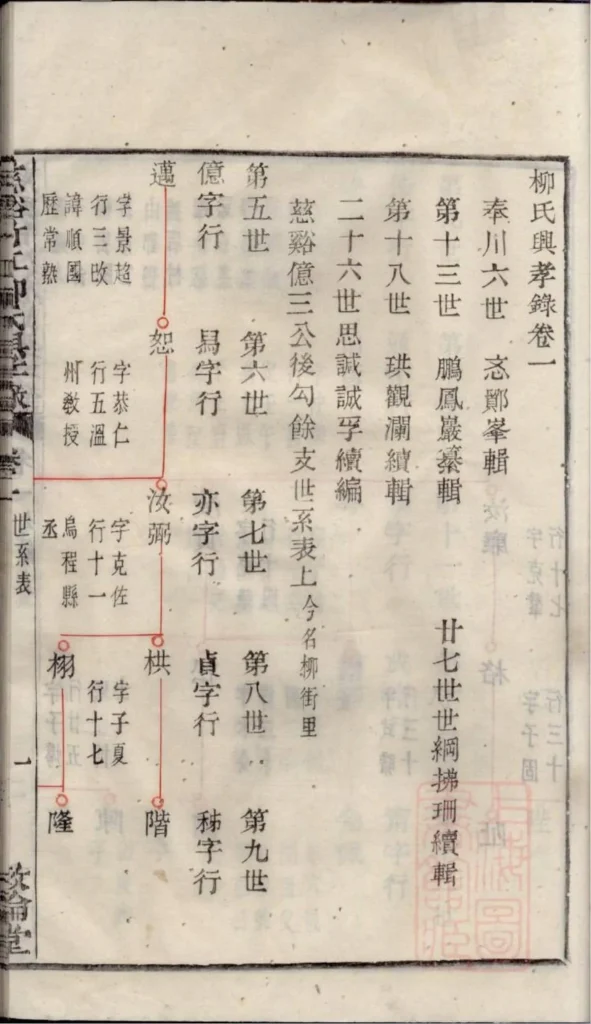 柳氏興孝錄卷一
奉川六世 忞鄮峯輯
第十三世 鵬鳳巖纂輯 廿七世世綱拂珊續輯
第十八世 珙觀瀾續輯
二十六世思誠誠孚續編
慈谿億三公後勾餘支世系表上 今名柳街里
第五世 第六世 第七世 第八世 第九世
億字行 昜字行 亦字行 貞字行 秭字行
邁 恕 汝弼 栱 階
字景超 字恭仁 字克佐 字子夏
行三改 行五溫 行十一 行十七
諱順國 州教授 烏程縣 栩 隆
歷常熟 丞
卷一 世系表 一 敦倫堂